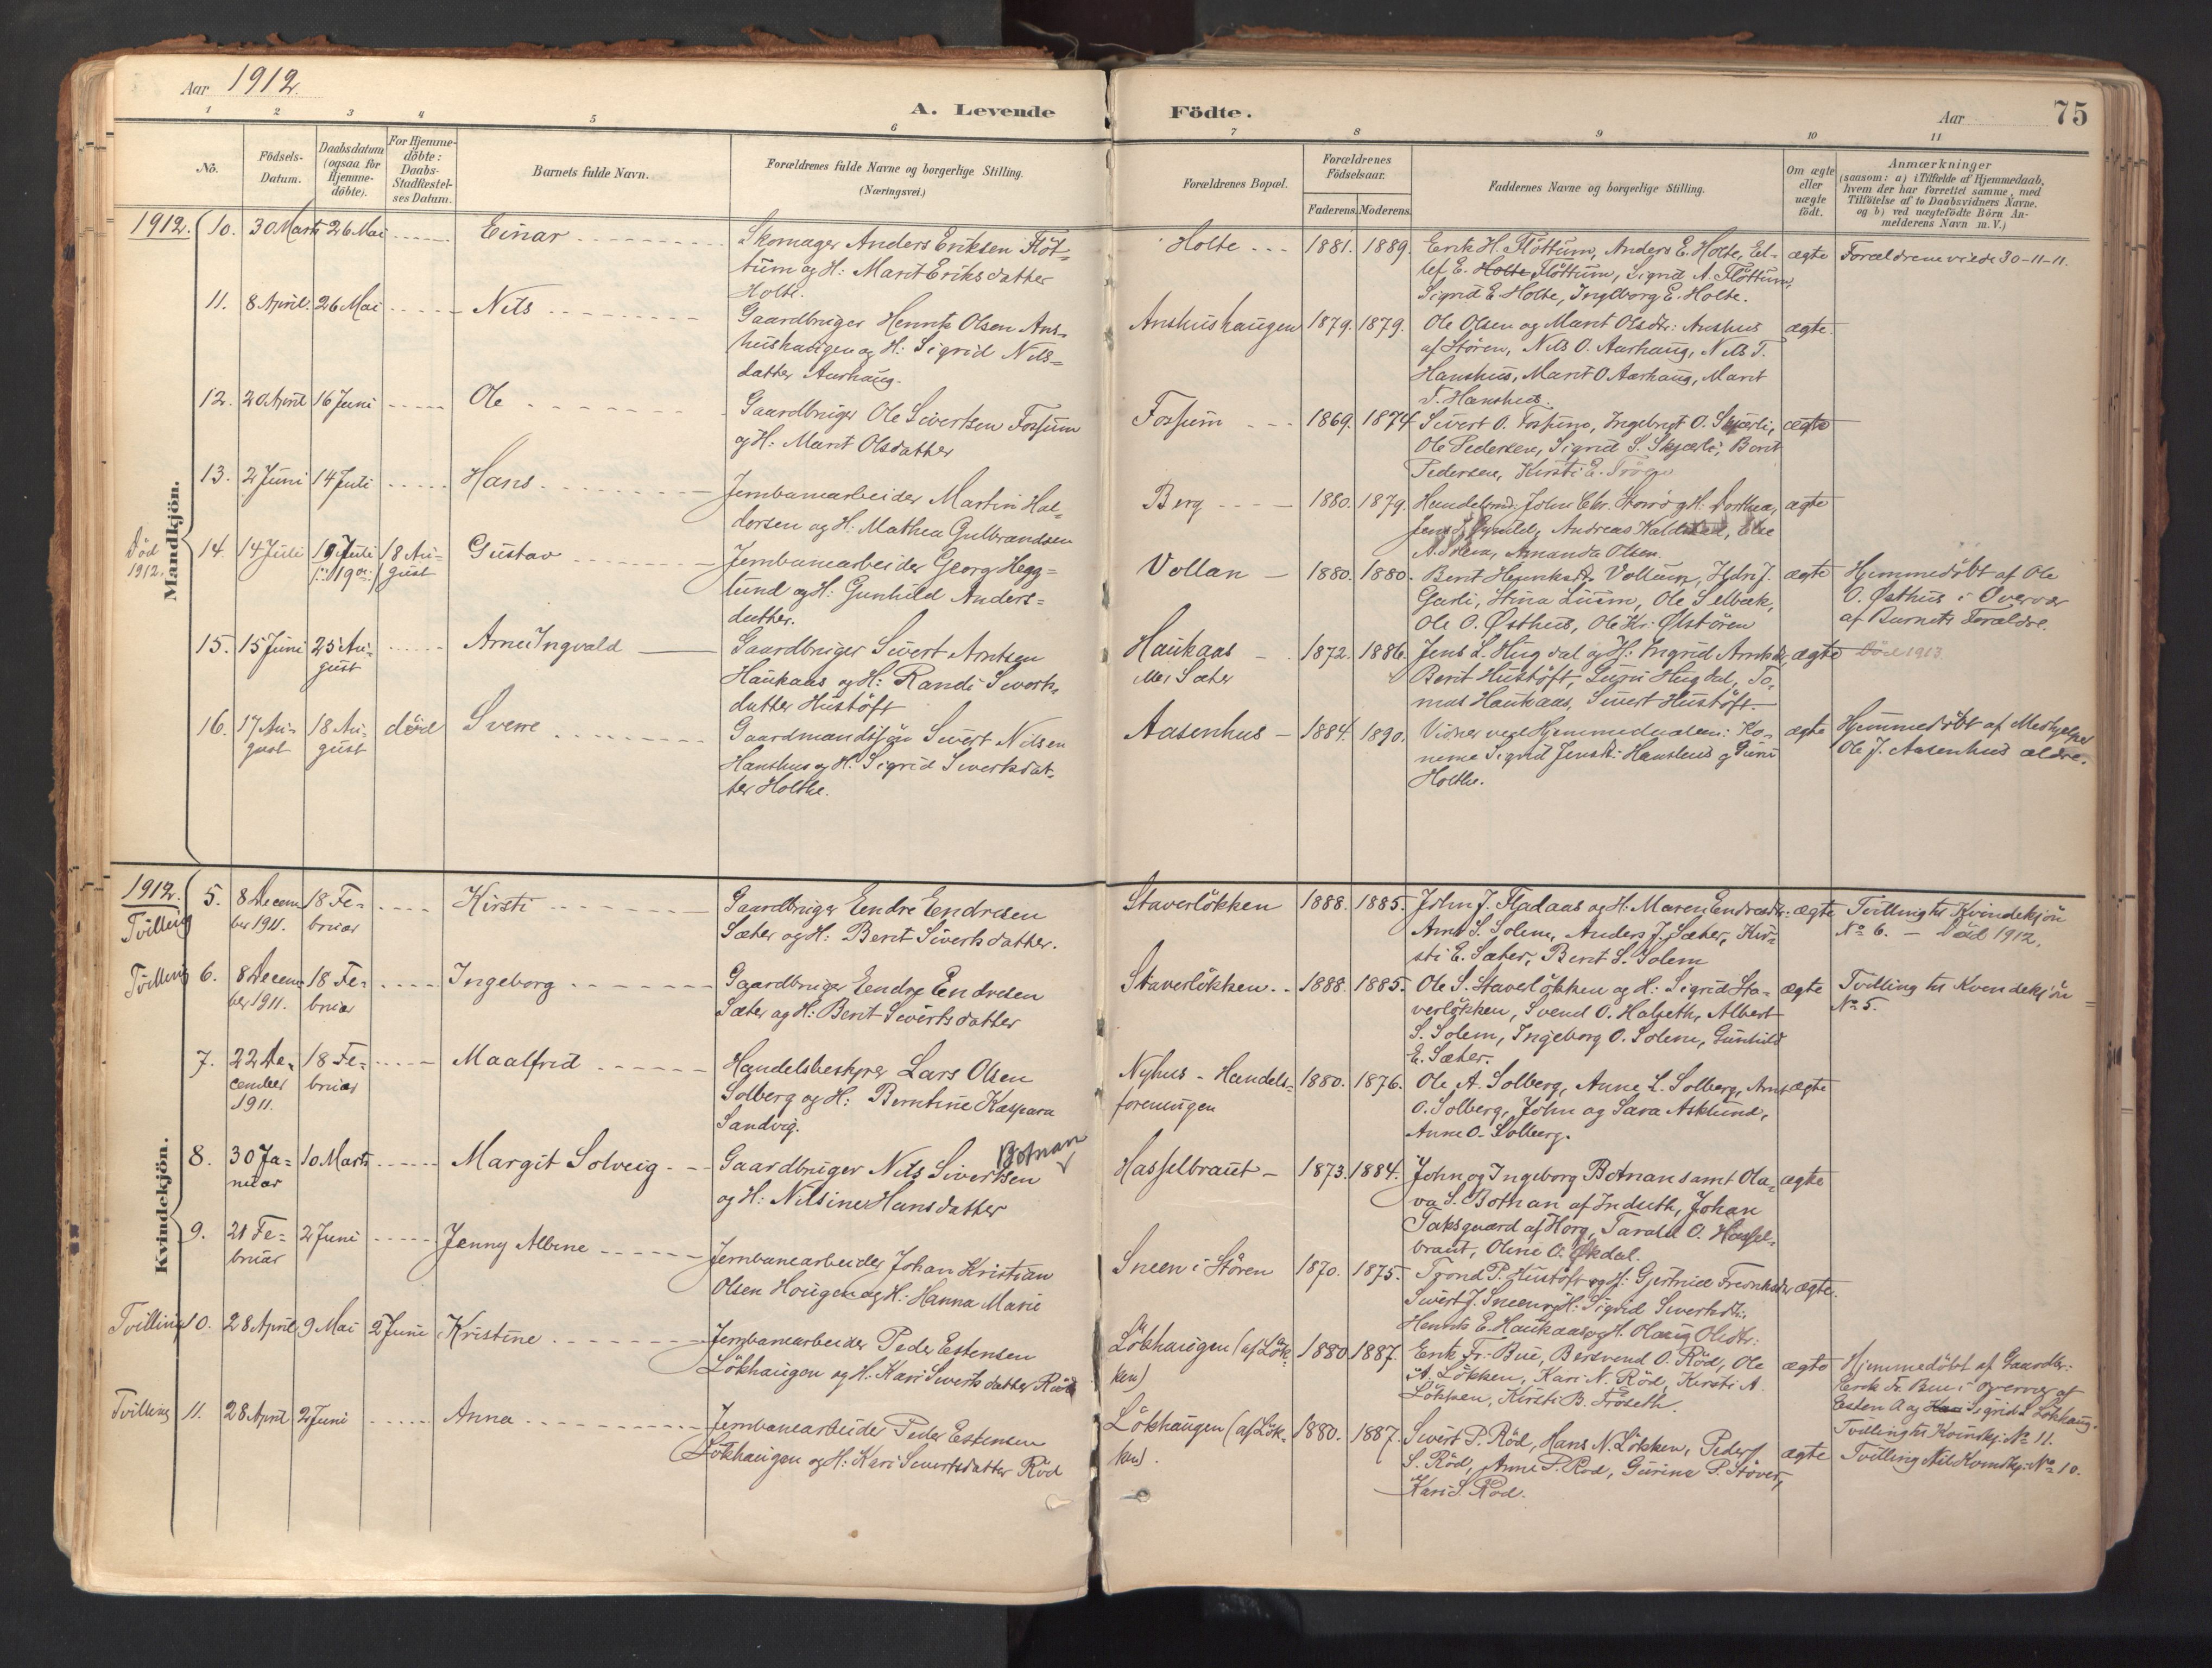 Aar 1912.
A. Levende Födte.
Aar
75
1 2 3 4 5 6 7 8 9 10 11
No.
Födsels-
Datum.
Daabsdatum
(ogsaa for
Hjemme-
döbte).
For Hjemme-
döbte:
Daabs-
Stadfæstel-
ses Datum.
Barnets fulde Navn.
Forældrenes fulde Navne og borgerlige Stilling.
(Næringsvei.)
Forældrenes Bopæl.
Forældrenes
Födselsaar.
Faderens. Moderens.
Faddernes Navne og borgerlige Stilling.
Om ægte
eller
uægte
födt.
Anmærkninger
(saasom: a) i Tilfælde af Hjemmedaab,
hvem der har forrettet samme, med
Tilföielse af to Daabsvidners Navne.
og b) ved uægtefödte Börn An-
melderens Navn m.V.)
Mandkjön.
1912. 10. 30 Marts 26 Mai Einar
Skomager Anders Eriksen Flöt-
tum og H: Marit Eriksdatter
Holte.
Holte 1881. 1889.
Erik H. Flöttum, Anders E. Holte, Ed-
lef E. Holte Flöttum, Sigrid A. Flöttum,
Sigrid E. Holte, Ingeborg E. Holte.
ægte Forældrene viede 30-11-11.
11. 8 April. 26 Mai Nils
Gaardbruger Henrik Olsen Ans-
hushaugen og H: Sigrid Nils-
datter Aurhaug.
Anshushaugen 1879. 1879.
Ole Olsen og Marit Olsdtr: Anshus
af Stören, Nils O. Aurhaug, Nils T.
Hanshus, Marit O Aurhaug, Marit
T. Hanshus.
ægte.
12. 20 April 16 Juni Ole
Gaardbruger Ole Sivertsen Fossum
og H: Marit Olsdatter
Fossum 1869. 1874
Sivert O. Fossum, Ingebrigt O. Skjærli,
Ole Pedersen, Sigrid S. Skjærli, Berit
Pedersen, Kirsti E.
ægte
13. 2 Juni 14 Juli Hans
Jernbanearbeider Martin Hal-
dorsen og H. Mathea Gulbrandsen
Berg 1880. 1879.
Handelsmd. John Chr. Storrö og H. Dorthea,
Andreas Else
A. Solem, Amanda Olsen.
ægte
Död
1912.
14. 14 Juli 19 Juli 18 Au-
gust
Gustav
Jernbanearbeider Georg Hegg-
lund og H: Gunhild Anders-
datter.
Vollan 1880. 1880.
Berit Henriksdtr. Vollum, J.
Garli, Stina Luum, Ole Selbæk,
Ole O. Östhus, Ole Kr. Ölstören
ægte
Hjemmedöbt af Ole
O. Östhus i Overvær
af Barnets Forældre.
15. 15 Juni 25 Au-
gust
Arne Ingvald
Gaardbruger Sivert Arntsen
Haukaas og H: Randi Siverts-
datter Hustöft
Haukaas
Sæter
1872. 1886.
Jens L. Hugdal og H: Ingrid Arntsdtr,
Berit Hustöft, Guru Hugdal, To-
mas Haukaas, Sivert Hustöft.
ægte Död 1913
16. 17 Au-
gust
18 Au-
gust
död Sverre
Gaardmandssön Sivert Nilsen
Hanshus og H: Sigrid Sivertsdat-
ter Holthe.
Aasenhus 1884. 1890.
Vidner ved Hjemmedaaben: Ko-
nerne Sigrid Jensdtr: Hanshus og Guru
Holthe.
ægte
Hjemmedöbt af Medhjelper
Ole J. Aasenhus ældre.
Kvindekjön.
1912.
Tvilling
5. 8 Decem-
ber 1911.
18 Fe-
bruar
Kirsti
Gaardbruger Eendre Eendresen
Sæter og H: Berit Sivertsdatter.
Staverlökken 1888. 1885.
John J. Fladaas og H: Maren Eendresdtr.
Arnt S. Solem, Anders J. Sæter, Kir-
sti E. Sæter, Berit S. Solem
ægte
Tvilling til Kvindekjön
No 6. - Död 1912.
Tvilling 6. 8 Decem-
ber 1911.
18 Fe-
bruar
Ingeborg
Gaardbruger Eendre Eendresen
Sæter og H: Berit Sivertsdatter
Staverlökken 1888. 1885.
Ole S. Staverlökken og H: Sigrid Sta-
verlökken, Svend O. Halseth, Albert
S. Solem, Ingeborg O. Solem, Gunhild
E. Sæter.
ægte
Tvilling til Kvindekjön
No 5.
7. 22 De-
cember
1911.
18 Fe-
bruar
Maalfrid
Handelsbestyrer Lars Olsen
Solberg og H: Berntine Kaspara
Sandvig.
Nyhus - Handels-
foreningen
1880. 1876.
Ole A. Solberg, Anne L. Solberg, Arnt
O. Solberg, John og Sara Asklund,
Anne O. Solberg.
ægte
8. 30 Ja-
nuar
10 Marts Margit Solveig
Botnan
Gaardbruger Nils Sivertsen
og H: Nilsine Hansdatter
Hasselbraut 1873. 1884.
John og Ingeborg Botnan samt Ola-
va S. Botnan af Indseth, Johan
Taksgaard af Horg, Tarald O. Hassel-
braut, Oline O. Ökdal.
ægte
9. 21 Fe-
bruar
2 Juni Jenny Albine
Jernbanearbeider Johan Kristian
Olsen Hougen og H: Hanna Marie
Sneen i Stören 1870. 1875.
Trond P. Hustöft og H: Gjertrud Fredriksdtr
Sivert J. Sneen og H: Sigrid Sivertsdtr.
Henrik E. Haukaas og H. Olaug Olsdtr:
ægte.
Tvilling 10. 28 April 9 Mai 2 Juni Kristine
Jernbanearbeider Peder Estensen
Lökhaugen og H: Kari Sivertsdatter Röd
Lökhaugen (af Lök-
ken)
1880 1887.
Erik Fr. Bue, Bersvend O. Röd, Ole
A. Lökken, Kari N. Röd, Kirsti A.
Lökken, Kirsti B. Fröseth.
ægte
Hjemmedöbt af Gaardbr:
Erik Fr. Bue i Overvær af
Esten A og Sigrid Lökhaug.
Tvilling til Kvindkj: No 11.
Tvilling 11. 28 April 2 Juni Anna
Jernbanearbeider Peder Estensen
Lökhaugen og H: Kari Sivertsdatter Röd
Lökhaugen (af Lök-
ken).
1880. 1887.
Sivert P. Röd, Hans N. Lökken, Peder
S. Röd, Anne P. Röd, Gurine P. Stöver,
Kari S. Röd.
ægte
Tvilling til Kvindkj: No 10.